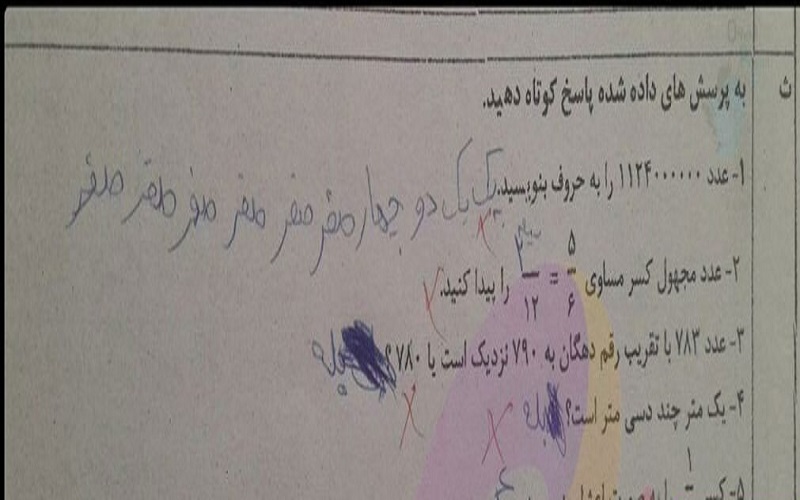 ث به پرسش های داده شده پاسخ کوتاه دهید.
۱- عدد ۱۱۲۴۰۰۰۰۰۰ را به حروف بنویسید. یک یک دو چهار صفر صفر صفر صفر صفر صفر
۲- عدد مجهول کسر مساوی ۵/۶ = /۱۲ را پیدا کنید.
۳- عدد ۷۸۳ با تقریب رقم دهگان به ۷۹۰ نزدیک است یا ۷۸۰؟ بله
۴- یک متر چند دسی متر است؟ بله
۵- کسر ۱